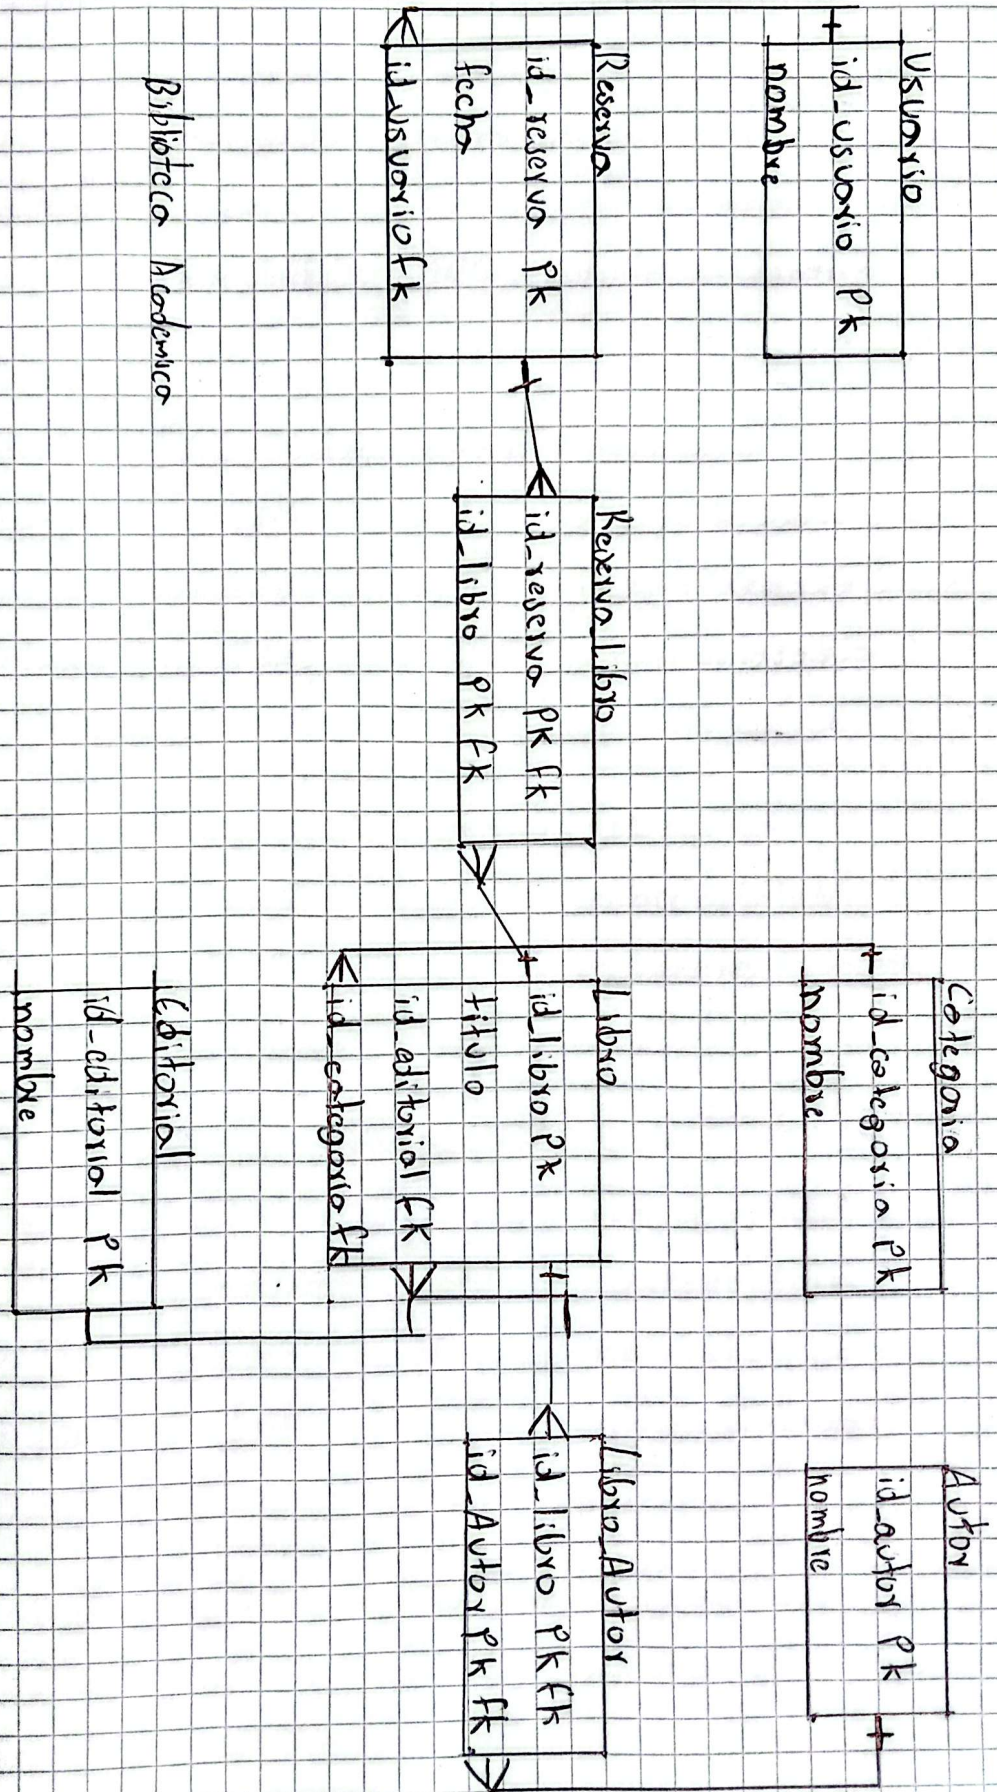 Usuario
id_usuario Pk
nombre
Reserva
id_reserva Pk
fecha
id_usuario fk
Reserva_Libro
id_reserva PK fk
id_libro PK fk
Categoria
id_categoria Pk
nombre
Libro
id_libro PK
titulo
id_editorial fk
id_categoria fk
Editorial
id_editorial PK
nombre
Autor
id_autor Pk
nombre
Libro_Autor
id_libro PK fk
id_Autor PK fk
Biblioteca Academica